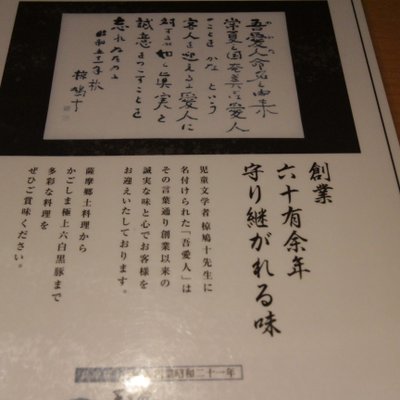 吾愛人命名由来
愛人
ことを かな という
客人を迎えるに愛人に
対する如く真実と
誠意を
椋鳩十
創業
六十有余年
守り継がれる味
児童文学者 椋鳩十先生に
名付けられた「吾愛人」は
その言葉通り創業以来の
誠実な味と心でお客様を
お迎えいたしております。
薩摩郷土料理から
かごしま極上六白黒豚まで
多彩な料理を
ぜひご賞味ください。
昭和二十一年